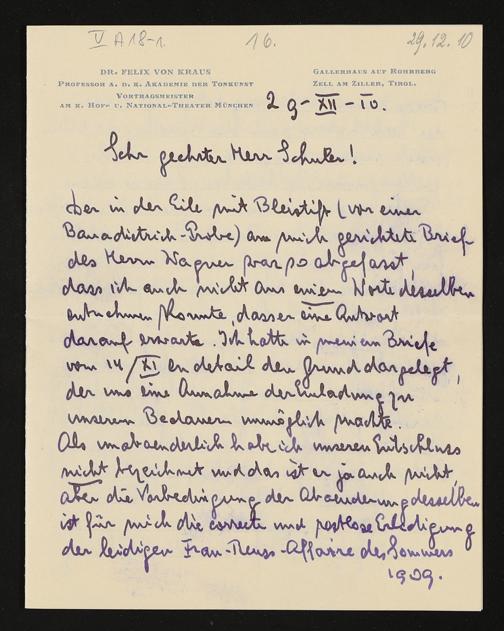 V A 18-1.
16.
29.12.10
DR. FELIX VON KRAUS
PROFESSOR A. D. K. AKADEMIE DER TONKUNST
VORTRAGSMEISTER
AM K. HOF- U. NATIONAL-THEATER MÜNCHEN
GALLERHAUS AUF ROHRBERG
ZELL AM ZILLER, TIROL.
29-XII-10.
Sehr geehrter Herr Schuler!
Der in der Eile mit Bleistift (vor einer
Banadietrich-Probe) an mich gerichtete Brief
des Herrn Wagner war so abgefasst,
dass ich auch nicht aus einem Worte desselben
entnehmen konnte, dass er eine Antwort
darauf erwarte. Ich hatte in meinem Briefe
vom 14/XI en detail den Grund dargelegt,
der uns eine Annahme der Einladung zu
unserem Bedauern unmöglich machte.
Als unabaenderlich habe ich unseren Entschluss
nicht bezeichnet und das ist er ja auch nicht,
aber die Vorbedingung der Abaenderung desselben
ist für mich die correcte und restlose Erledigung
der leidigen Frau-Reuss-Affaire des Sommers
1909.